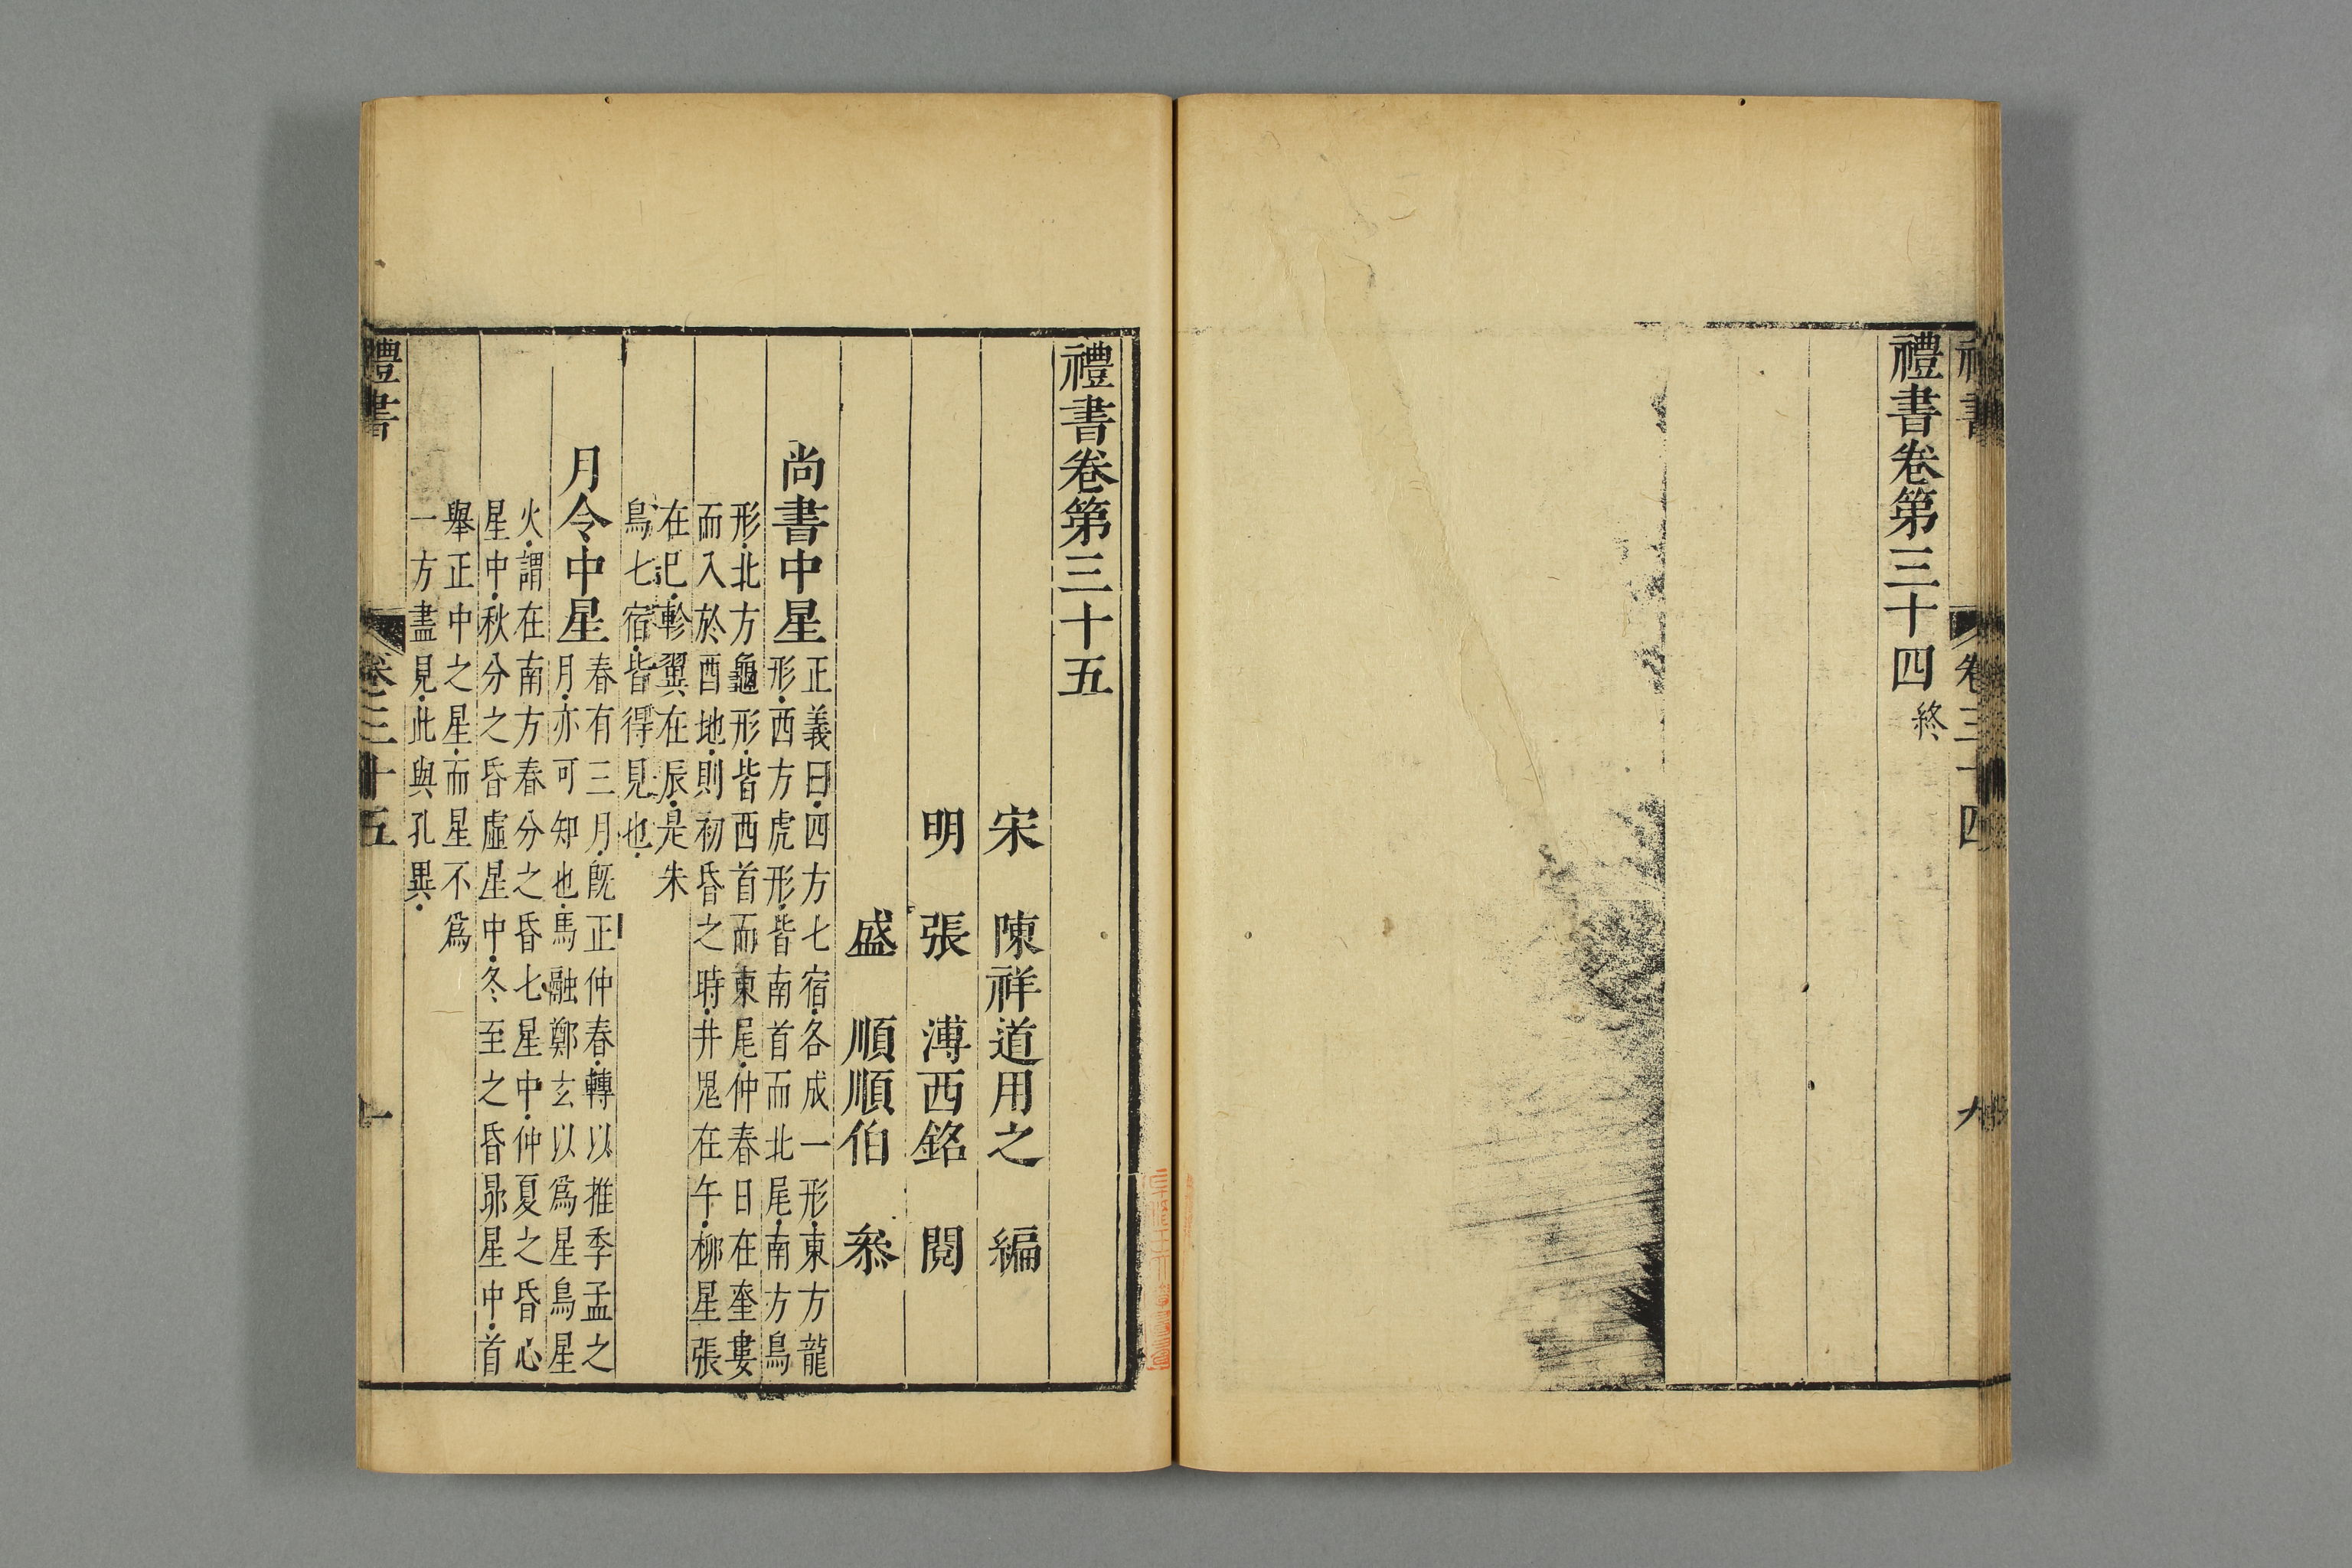 禮書卷第三十四終
禮書
卷三十四
九
禮書卷第三十五
宋 陳祥道用之 編
明 張 溥西銘 閱
盛 順順伯 叅
尚書中星
正義曰四方七宿各成一形東方龍
形西方虎形皆南首而北尾南方鳥
形北方龜形皆西首而東尾仲春日在奎婁
而入於酉地則初昏之時井鬼在午柳星張
在巳軫翼在辰是朱
鳥七宿皆得見也
月令中星
春有三月旣正仲春轉以推季孟之
月亦可知也馬融鄭玄以爲星鳥星
火謂在南方春分之昏七星中仲夏之昏心
星中秋分之昏虛星中冬至之昏昴星中首
舉正中之星而星不爲
一方盡見此與孔異
禮書
卷三十五
一